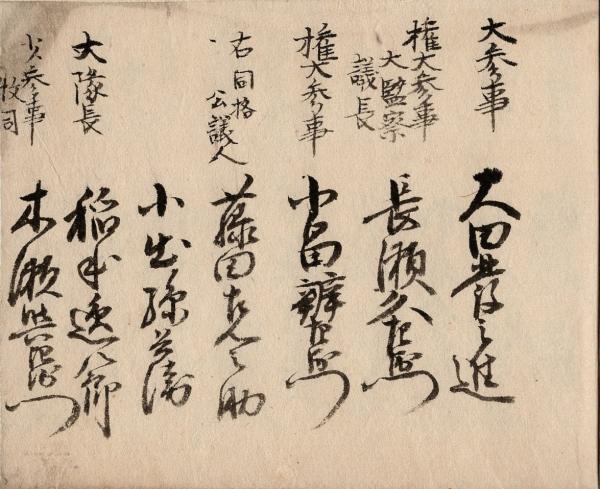 大参事
大田豊之進
権大参事
大監察
議長
長瀬久左衛門
権大参事
小畠辨右衛門
右同格
公議人
藤田左久之助
小出孫兵衛
大隊長
稲毛逸八郎
少参事
牧司
木瀬